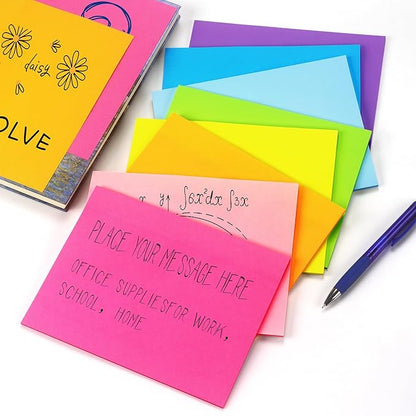 daisy
OLVE
x y↑ ∫6x²dx ∫3x
PLACE YOUR MESSAGE HERE
OFFICE SUPPLIESFOR WORK,
SCHOOL, HOME